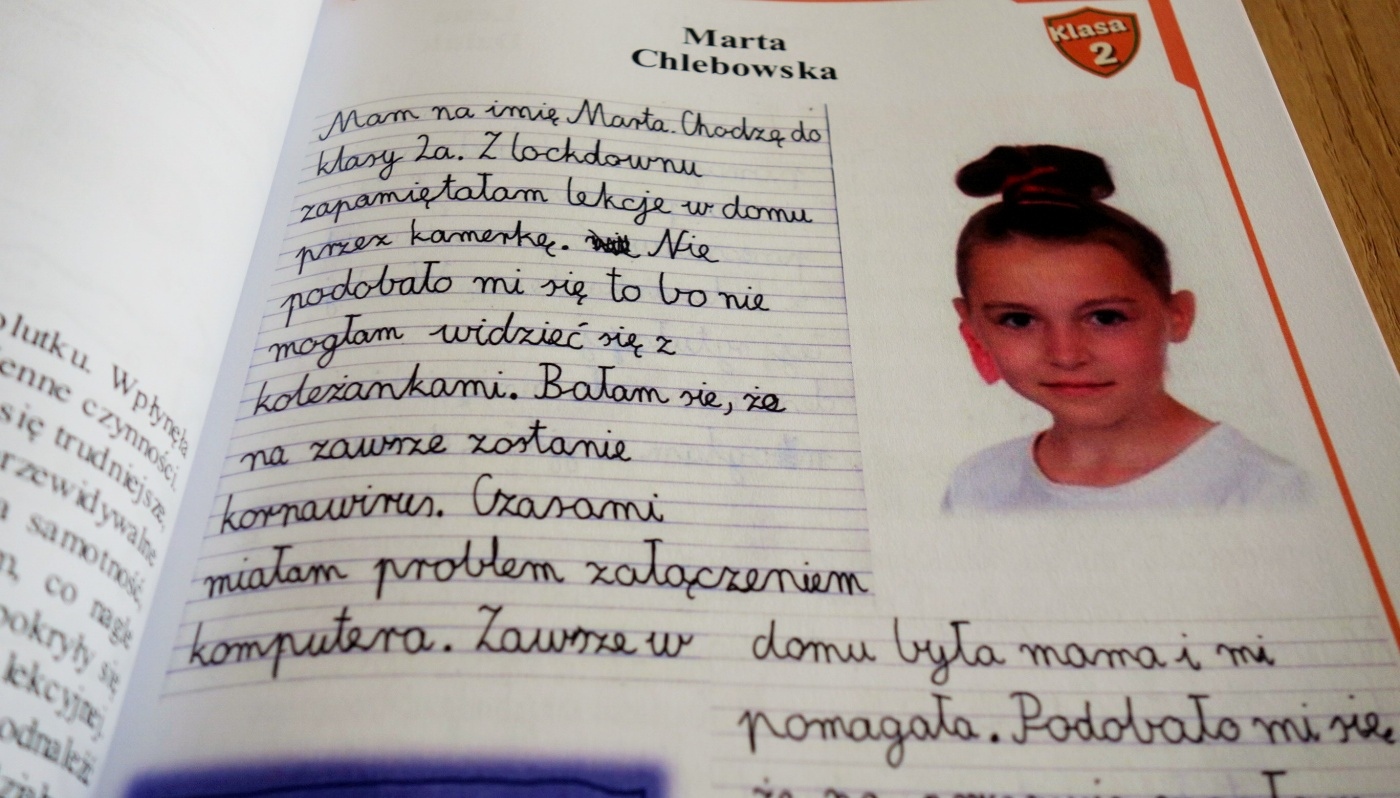 Marta
Chlebowska
Klasa
2
Mam na imię Marta. Chodzę do
klasy 2a. Z lockdownu
zapamiętałam lekcje w domu
przez kamerkę. Nie
podobało mi się to bo nie
mogłam widzieć się z
koleżankami. Bałam sie, że
na zawsze zostanie
kornawirus. Czasami
miałam problem załączeniem
komputera. Zawsze w domu była mama i mi
pomagała. Podobało mi się,
lutku. Wpłynęła
czynności.
się trudniejsze,
samotność,
co nagle
pokryły się
lekcyjnej